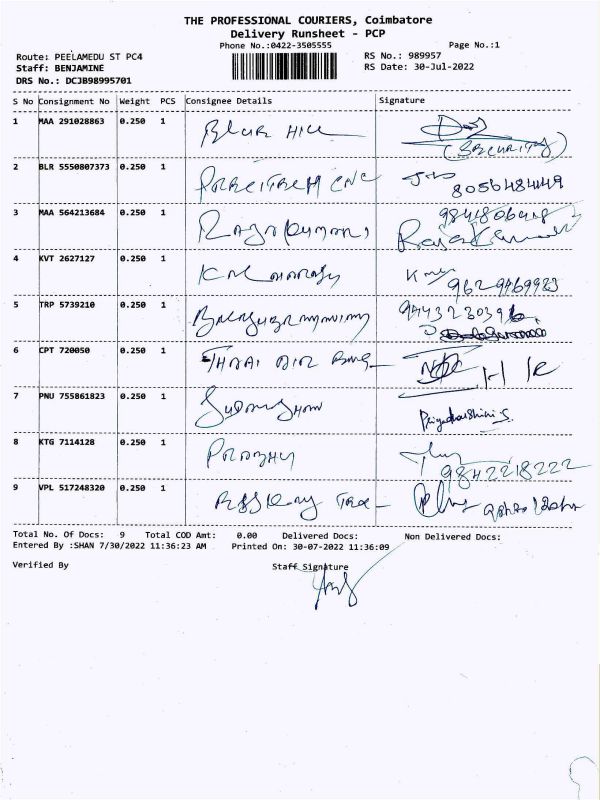 THE PROFESSIONAL COURIERS, Coimbatore
Delivery Runsheet - PCP
Phone No.:0422-3505555
Page No.:1
Route: PEELAMEDU ST PC4
RS No.: 989957
Staff: BENJAMINE
RS Date: 30-Jul-2022
DRS No.: DCJB98995701
S No Consignment No Weight PCS Consignee Details Signature
1 MAA 291028863 0.250 1 BLUE HILL
(SECURITY)
2 BLR 5550807373 0.250 1 CNC
3 MAA 564213684 0.250 1 RAJAKUMARI
4 KVT 2627127 0.250 1
5 TRP 5739210 0.250 1
6 CPT 720050 0.250 1
7 PNU 755861823 0.250 1 Priyadharshini S.
8 KTG 7114128 0.250 1 PRABHU
9842218222
9 VPL 517248320 0.250 1
Total No. Of Docs: 9 Total COD Amt: 0.00 Delivered Docs: Non Delivered Docs:
Entered By :SHAN 7/30/2022 11:36:23 AM Printed On: 30-07-2022 11:36:09
Verified By Staff Signature